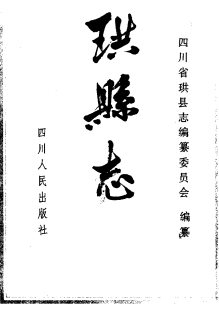 四川省珙县志编纂委员会 编纂
珙縣志
四川人民出版社